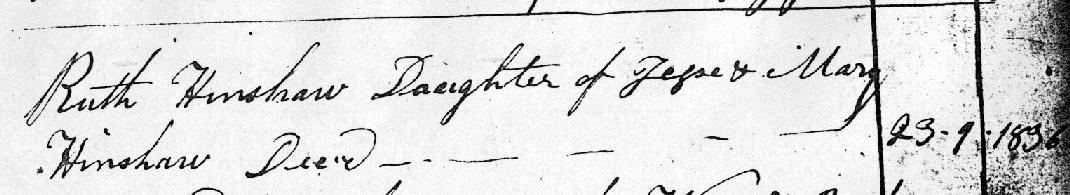 Ruth Hinshaw Daughter of Jesse & Mary
Hinshaw Deed — - — — - — 23 - 9 - 1836